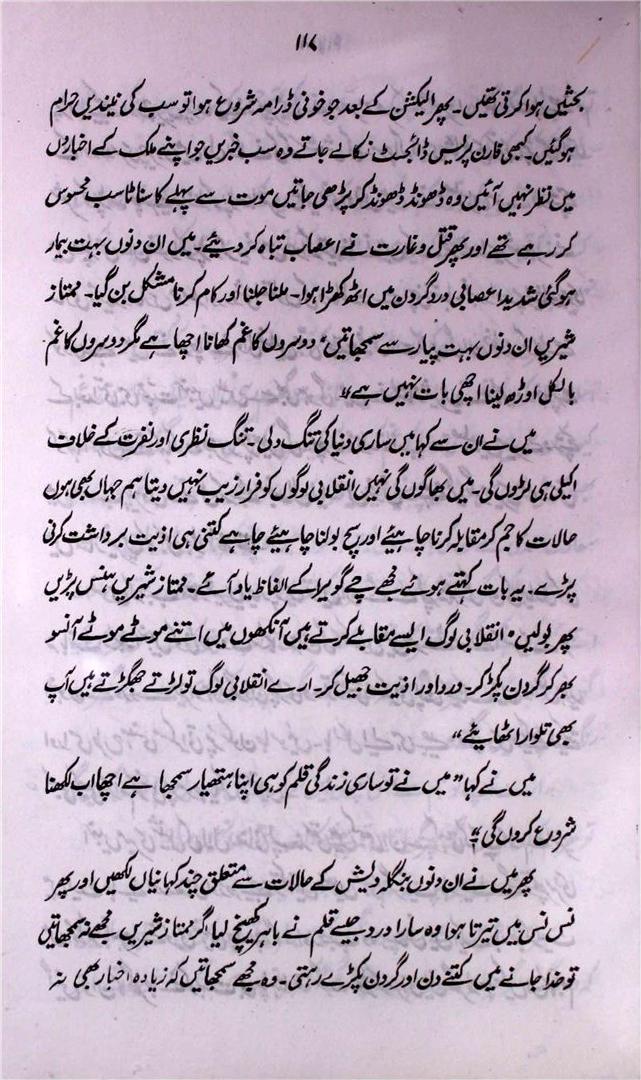 ۱۱۷
بحثیں ہوا کرتی تھیں۔ پھر الیکشن کے بعد جو خونی ڈرامہ شروع ہوا تو سب کی نیندیں حرام
ہو گئیں۔ کبھی فارن پریس ڈائجسٹ نکالے جاتے وہ سب خبریں جو اپنے ملک کے اخباروں
میں نظر نہیں آئیں وہ ڈھونڈ ڈھونڈ کر پڑھی جاتیں موت سے پہلے کا سناٹا سب محسوس
کر رہے تھے اور پھر قتل و غارت نے اعصاب تباہ کر دیئے۔ میں ان دنوں بہت بیمار
ہو گئی شدید اعصابی درد گردن میں اٹھ کھڑا ہوا۔ ملنا جلنا اور کام کرنا مشکل بن گیا۔ ممتاز
شیریں ان دنوں بہت پیار سے سمجھاتیں ”دوسروں کا غم کھانا اچھا ہے مگر دوسروں کا غم
بالکل اوڑھ لینا اچھی بات نہیں ہے“
میں نے ان سے کہا میں ساری دنیا کی تنگ دلی۔ تنگ نظری اور نفرت کے خلاف
اکیلی ہی لڑوں گی۔ میں بھاگوں گی نہیں انقلابی لوگوں کو فرار زیب نہیں دیتا ہم جہاں بھی ہوں
حالات کا جم کر مقابلہ کرنا چاہیئے اور سچ بولنا چاہیئے چاہے کتنی ہی اذیت برداشت کرنی
پڑے۔ یہ بات کہتے ہوئے مجھے چے گویرا کے الفاظ یاد آئے۔ ممتاز شیریں ہنس پڑیں
پھر بولیں ”انقلابی لوگ ایسے مقابلے کرتے ہیں آنکھوں میں اتنے موٹے موٹے آنسو
بھر کر گردن پکڑ کر۔ درد اور اذیت جھیل کر۔ ارے انقلابی لوگ تو لڑتے جھگڑتے ہیں آپ
بھی تلوار اٹھایئے“
میں نے کہا ”میں نے تو ساری زندگی قلم کو ہی اپنا ہتھیار سمجھا ہے اچھا اب لکھنا
شروع کروں گی“
پھر میں نے ان دنوں بنگلہ دیش کے حالات سے متعلق چند کہانیاں لکھیں اور پھر
نس نس میں تیرتا ہوا وہ سارا درد جیسے قلم نے باہر کھینچ لیا اگر ممتاز شیریں مجھے نہ سمجھاتیں
تو خدا جانے میں کتنے دن اور گردن پکڑے رہتی۔ وہ مجھے سمجھاتیں کہ زیادہ اخبار بھی نہ